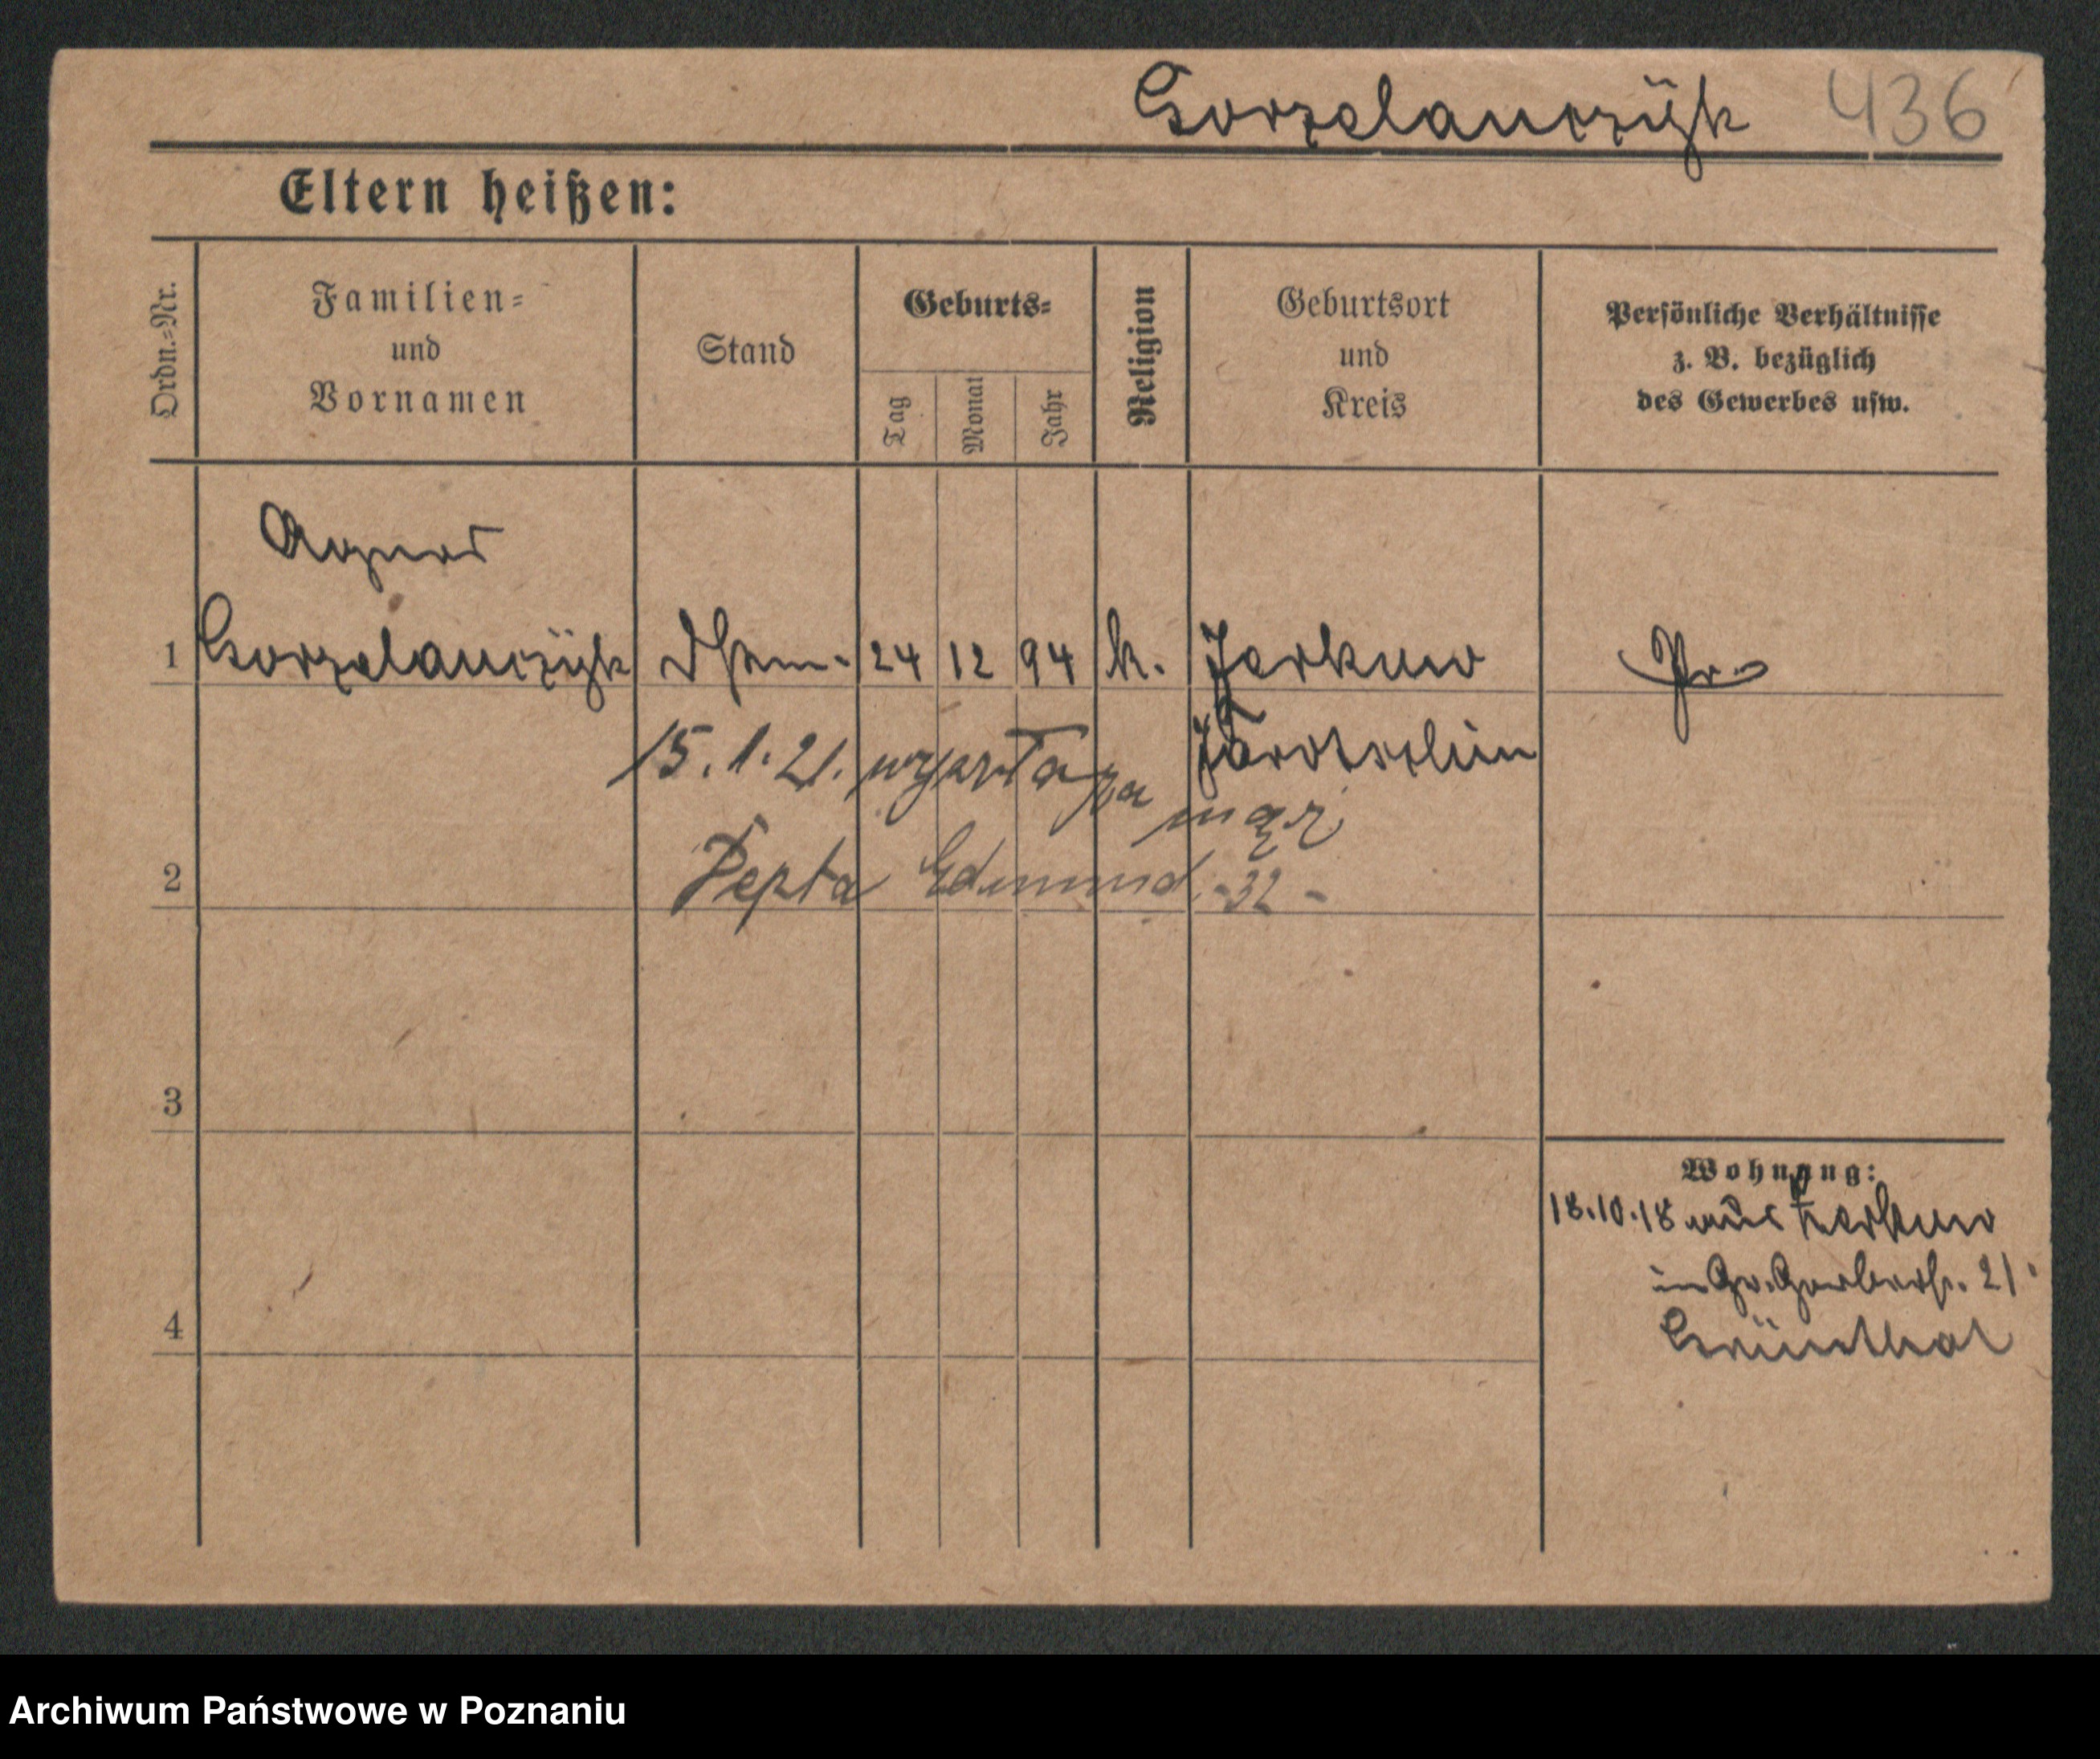 Gorzelanczyk 436
Eltern heißen:
Ordn.=Nr.
Familien=
und
Vornamen
Stand
Geburts=
Tag
Monat
Jahr
Religion
Geburtsort
und
Kreis
Persönliche Verhältnisse
z. B. bezüglich
des Gewerbes usw.
Agnes
1 Gorzelanczyk 24 12 94 k. Zerkow Pr.
Jarotschin
15.1.21. wyszła za mąż
2 Pepta Edmund -32-
3
4
Wohnung:
18.10.18 aus Zerkow
in Gr. Gerberstr. 21
Grünthal
Archiwum Państwowe w Poznaniu